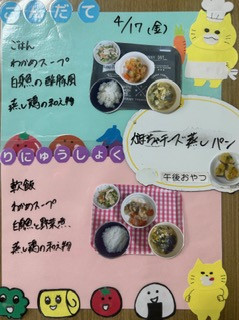 こんだて
4/17(金)
ごはん
わかめスープ
白身魚の酢豚風
蒸し鶏の和え物
蒸しパン
午後おやつ
りにゅうしょく
軟飯
わかめスープ
白身魚と野菜煮
蒸し鶏の和え物